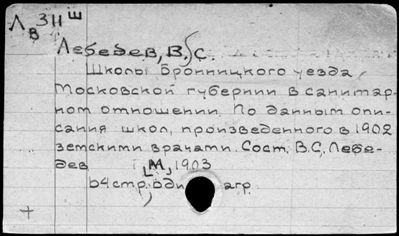 Л 311 ш
в
Лебедев, В. С.
Школы Бронницкого уезда,
Московской губернии в санитар-
ном отношении. По данным опи-
сания школ, произведенного в 1902
земскими врачами. Сост. В.С. Лебе-
дев [М, 1903
64 стр.,